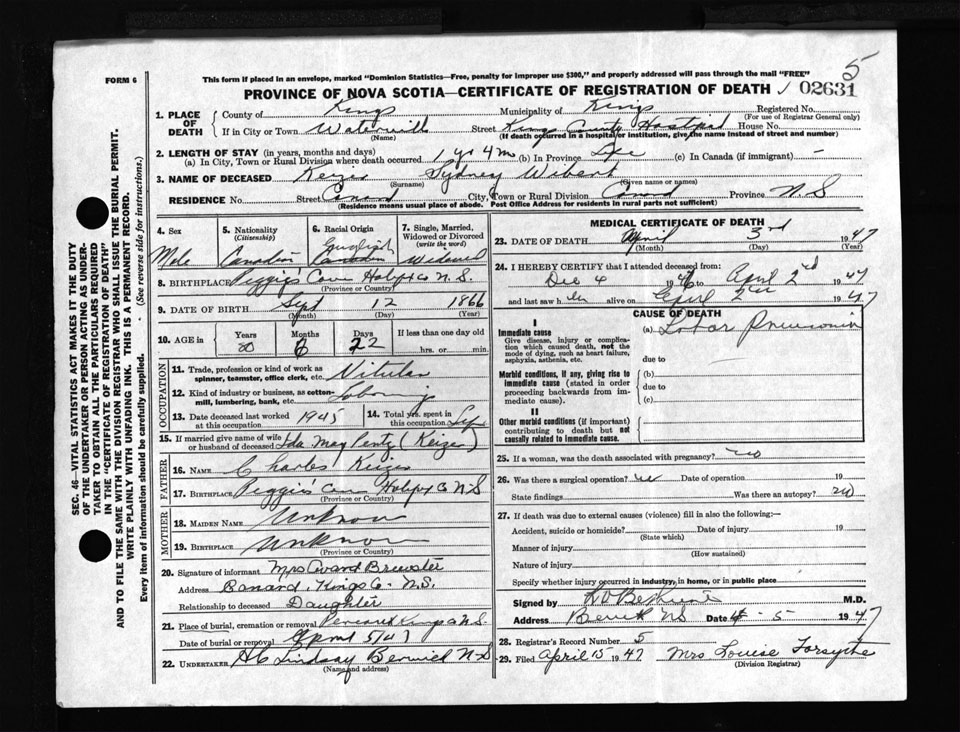 5
FORM 6
This form if placed in an envelope, marked "Dominion Statistics—Free, penalty for improper use $300," and properly addressed will pass through the mail "FREE"
PROVINCE OF NOVA SCOTIA—CERTIFICATE OF REGISTRATION OF DEATH 02631
1. PLACE OF DEATH
County of Kings Municipality of Kings Registered No.
(For use of Registrar General only)
If in City or Town Waterville Street Kings County Hospital House No.
(Name) (If death occurred in a hospital or institution, give the name instead of street and number)
2. LENGTH OF STAY (in years, months and days)
(a) In City, Town or Rural Division where death occurred 1 yr 4 m (b) In Province Life (c) In Canada (if immigrant) -
3. NAME OF DECEASED Sydney Wibert
(Surname) (Given name or names)
RESIDENCE No. Street City, Town or Rural Division Province N.S
(Residence means usual place of abode. Post Office Address for residents in rural parts not sufficient)
4. Sex 5. Nationality (Citizenship) 6. Racial Origin 7. Single, Married, Widowed or Divorced (write the word)
Male Canadian English Widowed
8. BIRTHPLACE Peggie's Cove Halifx Co N.S.
(Province or Country)
9. DATE OF BIRTH Sept 12 1866
(Month) (Day) (Year)
10. AGE in Years 80 Months 6 Days 22 If less than one day old
hrs. or min.
OCCUPATION
11. Trade, profession or kind of work as spinner, teamster, office clerk, etc.
12. Kind of industry or business, as cotton-mill, lumbering, bank, etc. Laboring
13. Date deceased last worked 1945 14. Total yrs. spent in Life
15. If married give name of wife or husband of deceased Ida May Pentz
FATHER
16. NAME Charles
17. BIRTHPLACE Peggie's Cove Halifx Co N.S
(Province or Country)
MOTHER
18. MAIDEN NAME Unknown
19. BIRTHPLACE Unknown
(Province or Country)
20. Signature of informant Mrs Brewster
Address Canard Kings Co. N.S.
Relationship to deceased Daughter
21. Place of burial, cremation or removal Kings Co N.S.
Date of burial or removal April 5/47
22. UNDERTAKER Lindsay Berwick N S
(Name and address)
MEDICAL CERTIFICATE OF DEATH
23. DATE OF DEATH April 3rd 1947
(Month) (Day) (Year)
24. I HEREBY CERTIFY that I attended deceased from:
Dec 4 1946 to April 2nd 1947
and last saw h im alive on April 2nd 1947
CAUSE OF DEATH
I
Immediate cause (a) Lobar Pneumonia
Give disease, injury or complication which caused death, not the mode of dying, such as heart failure, asphyxia, asthenia, etc. due to
Morbid conditions, if any, giving rise to immediate cause (stated in order proceeding backwards from immediate cause). (b)
due to
(c)
II
Other morbid conditions (if important) contributing to death but not causally related to immediate cause.
25. If a woman, was the death associated with pregnancy? no
26. Was there a surgical operation? no Date of operation 19
State findings Was there an autopsy? no
27. If death was due to external causes (violence) fill in also the following:—
Accident, suicide or homicide? Date of injury 19
(State which)
Manner of injury
(How sustained)
Nature of injury
Specify whether injury occurred in industry, in home, or in public place
Signed by M.D.
Address Berwick NS Date 4 - 5 1947
28. Registrar's Record Number 5
29. Filed April 15 1947 Mrs Louise Forsythe
(Division Registrar)
SEC. 46—VITAL STATISTICS ACT MAKES IT THE DUTY
OF THE UNDERTAKER OR PERSON ACTING AS UNDER-
TAKER TO OBTAIN ALL THE PARTICULARS REQUIRED
IN THE "CERTIFICATE OF REGISTRATION OF DEATH"
AND TO FILE THE SAME WITH THE DIVISION REGISTRAR WHO SHALL ISSUE THE BURIAL PERMIT.
WRITE PLAINLY WITH UNFADING INK. THIS IS A PERMANENT RECORD.
Every item of information should be carefully supplied. (See reverse side for instructions.)